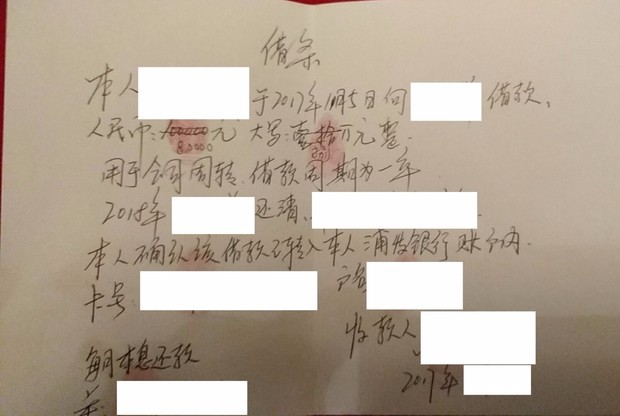 借条
本人 于2017年 月5日向 借款、
人民币:100000元 大写:壹拾万元整.
80000
用于公司周转.借款周期为一年
2018年 还清、
本人确认该借款已转入本人浦发银行账户内.
卡号: 户名
收款人
每月本息还款
2017年